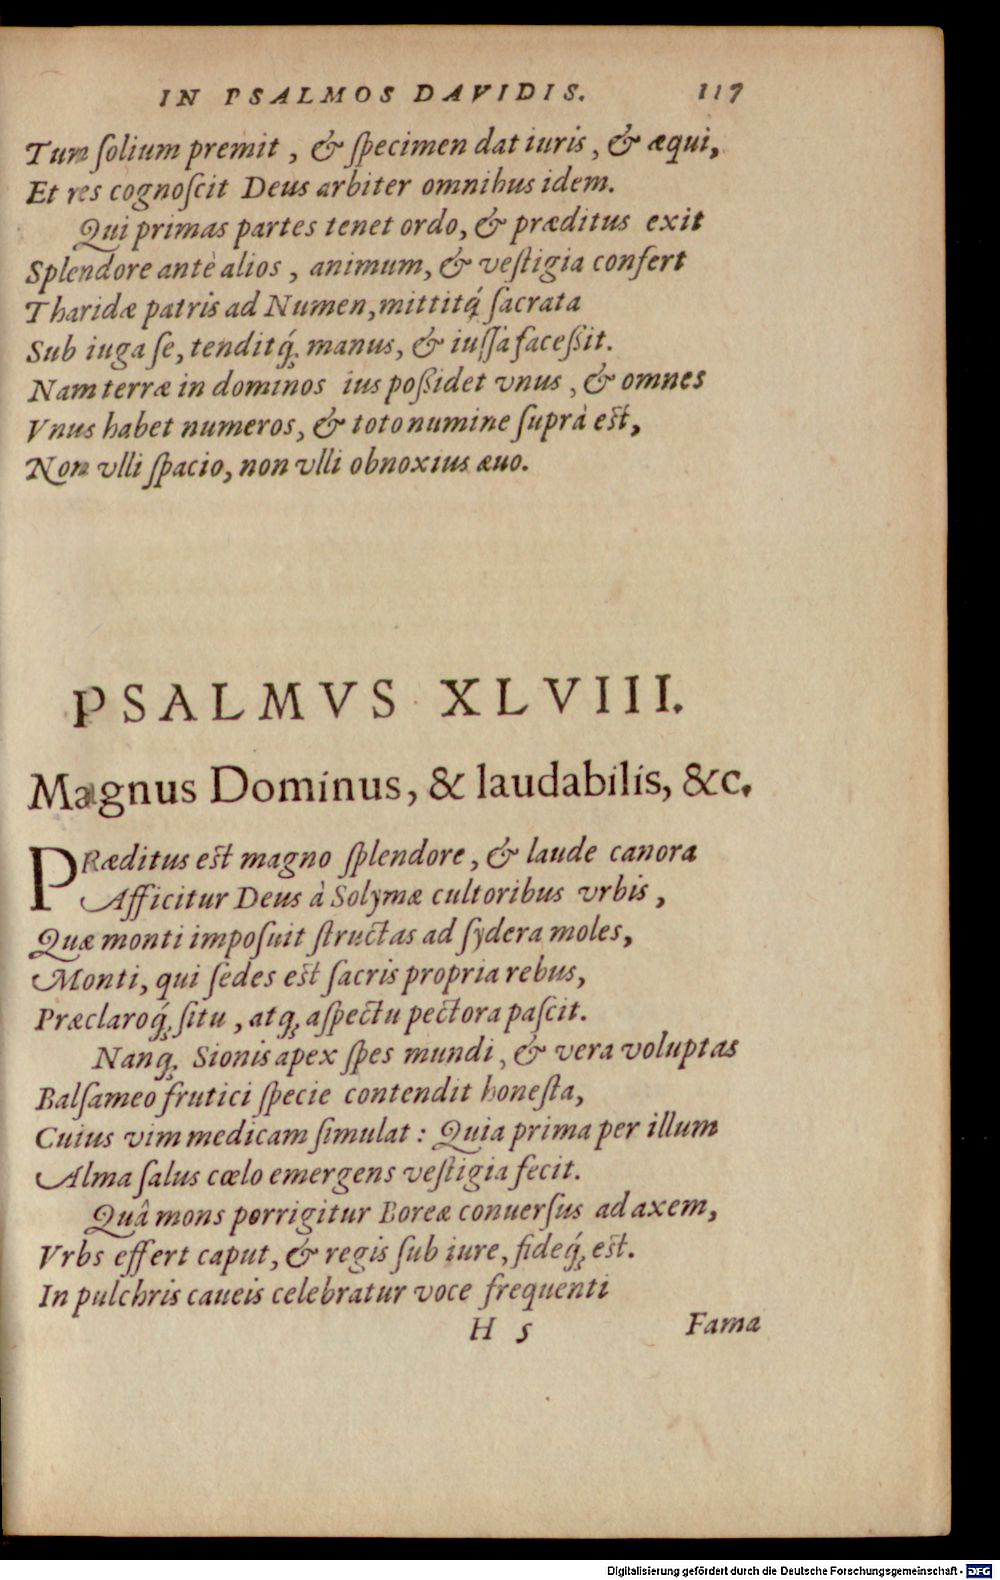 IN PSALMOS DAVIDIS. 117
Tum ſolium premit, & ſpecimen dat iuris, & æqui,
Et res cognoſcit Deus arbiter omnibus idem.
Qui primas partes tenet ordo, & præditus exit
Splendore antè alios, animum, & veſtigia confert
Tharidæ patris ad Numen, mittitq́; ſacrata
Sub iuga ſe, tenditq́; manus, & iuſſa faceßit.
Nam terræ in dominos ius poßidet vnus, & omnes
Vnus habet numeros, & toto numine ſuprà est,
Non vlli ſpacio, non vlli obnoxius æuo.
PSALMVS XLVIII.
Magnus Dominus, & laudabilis, &c.
PRæditus est magno ſplendore, & laude canora
Afficitur Deus à Solymæ cultoribus vrbis,
Quæ monti impoſuit ſtructas ad ſydera moles,
Monti, qui ſedes est ſacris propria rebus,
Præclaroq́; ſitu, atq; aſpectu pectora paſcit.
Nanq; Sionis apex ſpes mundi, & vera voluptas
Balſameo frutici ſpecie contendit honeſta,
Cuius vim medicam ſimulat: Quia prima per illum
Alma ſalus cœlo emergens veſtigia fecit.
Quâ mons porrigitur Boreæ conuerſus ad axem,
Vrbs effert caput, & regis ſub iure, fideq́; est.
In pulchris caueis celebratur voce frequenti
H 5 Fama
Digitalisierung gefördert durch die Deutsche Forschungsgemeinschaft - DFG